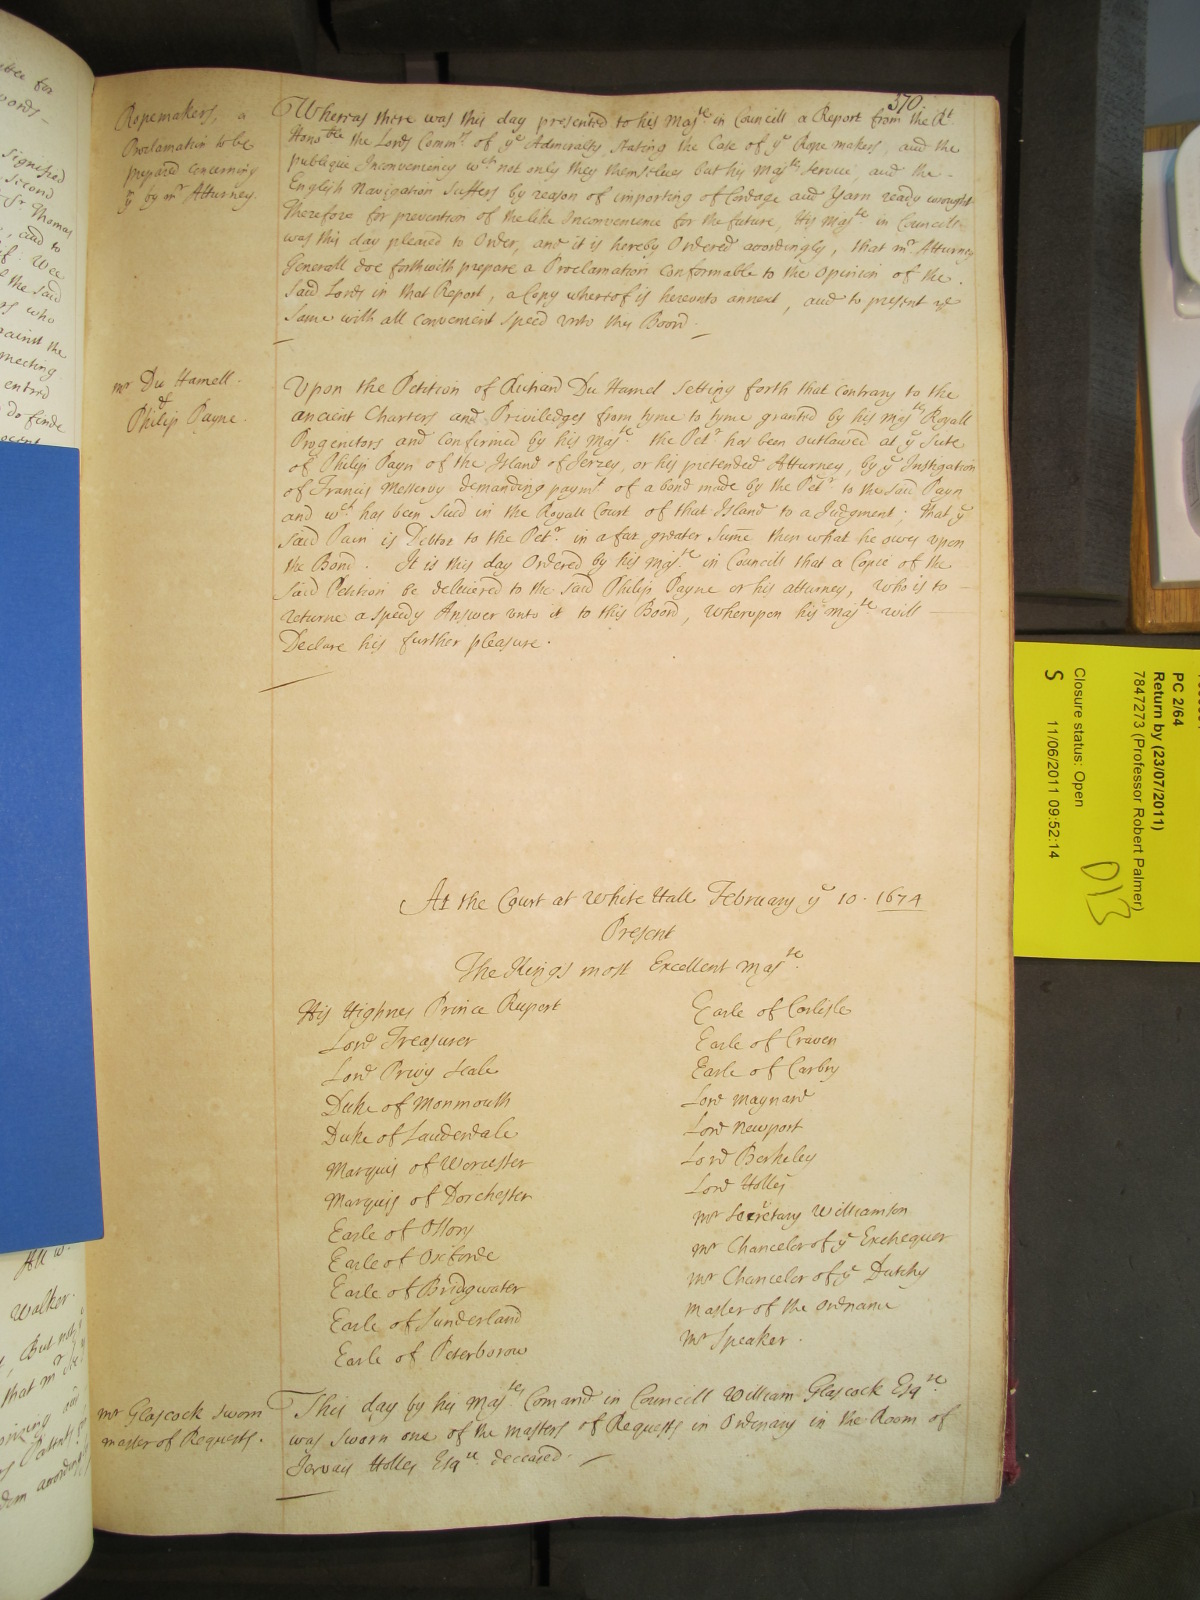 370.
Ropemakers, a
Proclamation to be
prepared concerning
yᵐ by mʳ Attorney.
Whereas there was this day presented to his Majᵗⁱᵉ in Councill a Report from the Rᵗ
Honoᵇˡᵉ the Lords Commʳˢ of yᵉ Admiralty, stating the Case of yᵉ Rope makers, and the
publique Inconveniency wᶜʰ not only they themselves but his Majᵗⁱᵉˢ Service, and the -
English Navigation suffers by reason of importing of Cordage and Yarn ready wrought
Therefore for prevention of the like Inconvenience for the future, His Majᵗⁱᵉ in Councill
was this day pleased to Order, and it is hereby Ordered accordingly, that mʳ Attorney
Generall doe forthwith prepare a Proclamation conformable to the opinion of the
said Lords in that Report, a Copy whereof is hereunto annext, and to present yᵉ
same with all convenient speed unto this Board.
mʳ Du Hamell.
&
Philip Payne.
Upon the Petition of Richard Du Hamel setting forth that contrary to the
ancient Charters and Priviledges from tyme to tyme granted by his Majᵗⁱᵉˢ Royall
Progenitors and confirmed by his Majᵗⁱᵉ the Petʳ has been outlawed at yᵉ Sute
of Philip Payn of the Island of Jerzey, or his pretended Attorney, by yᵉ Instigation
of Francis Messervy demanding paymᵗ of a bond made by the Petʳ to the said Payn
and wᶜʰ has been sued in the Royall Court of that Island to a Judgment; that yᵉ
said Pain is Debtor to the Petʳ in a far greater Sume then what he owes upon
the Bond. It is this day Ordered by his Majᵗⁱᵉ in Councill that a Copie of the
said Petition be delivered to the said Philip Payne or his attorney, who is to -
returne a speedy Answer unto it to this Board, wherupon his Majᵗⁱᵉ will -
Declare his further pleasure.
At the Court at White Hall February yᵉ 10. 1674
Present
The Kings most Excellent Majᵗⁱᵉ.
His Highnes Prince Rupert
Lord Treasurer
Lord Privy Seale
Duke of Monmouth
Duke of Lauderdale
Marquis of Worcester
Marquis of Dorchester
Earle of Ossory
Earle of Oxforde
Earle of Bridgwater
Earle of Sunderland
Earle of Peterborow
Earle of Carlisle
Earle of Craven
Earle of Carbry
Lord Maynard
Lord Newport
Lord Berkeley
Lord Holles
mʳ Secretary Williamson
mʳ Chancelor of yᵉ Exchequer
mʳ Chancelor of yᵉ Dutchy
Master of the Ordnance
mʳ Speaker.
mʳ Glascock sworn
master of Requests.
This day by his Majᵗⁱᵉˢ Comand in Councill William Glascock Esqʳᵉ
was sworn one of the masters of Requests in Ordinary in the Room of
Jervais Holles Esqʳᵉ deceased.
PC 2/64
Return by (23/07/2011)
7847273 (Professor Robert Palmer)
Closure status: Open
S 11/06/2011 09:52:14
D13